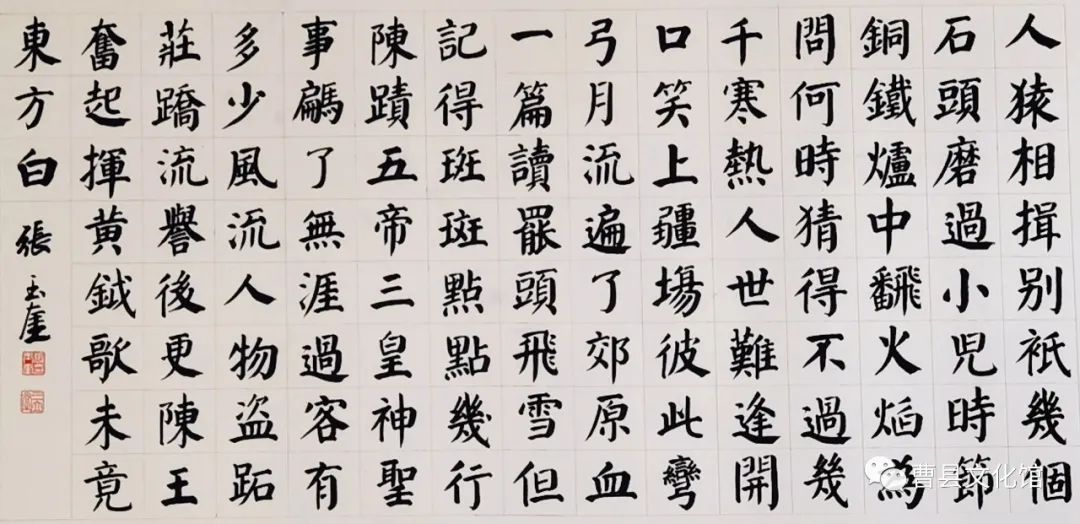 人猿相揖别祇幾個
石頭磨過小児時節
銅鐵爐中飜火焰為
問何時猜得不過幾
千寒熱人世難逢開
口笑上疆場彼此彎
弓月流遍了郊原血
一篇讀罷頭飛雪但
記得斑斑點點幾行
陳蹟五帝三皇神聖
事騙了無涯過客有
多少風流人物盗跖
莊蹻流譽後更陳王
奮起揮黄鉞歌未竟
東方白 張玉崖
曹县文化馆